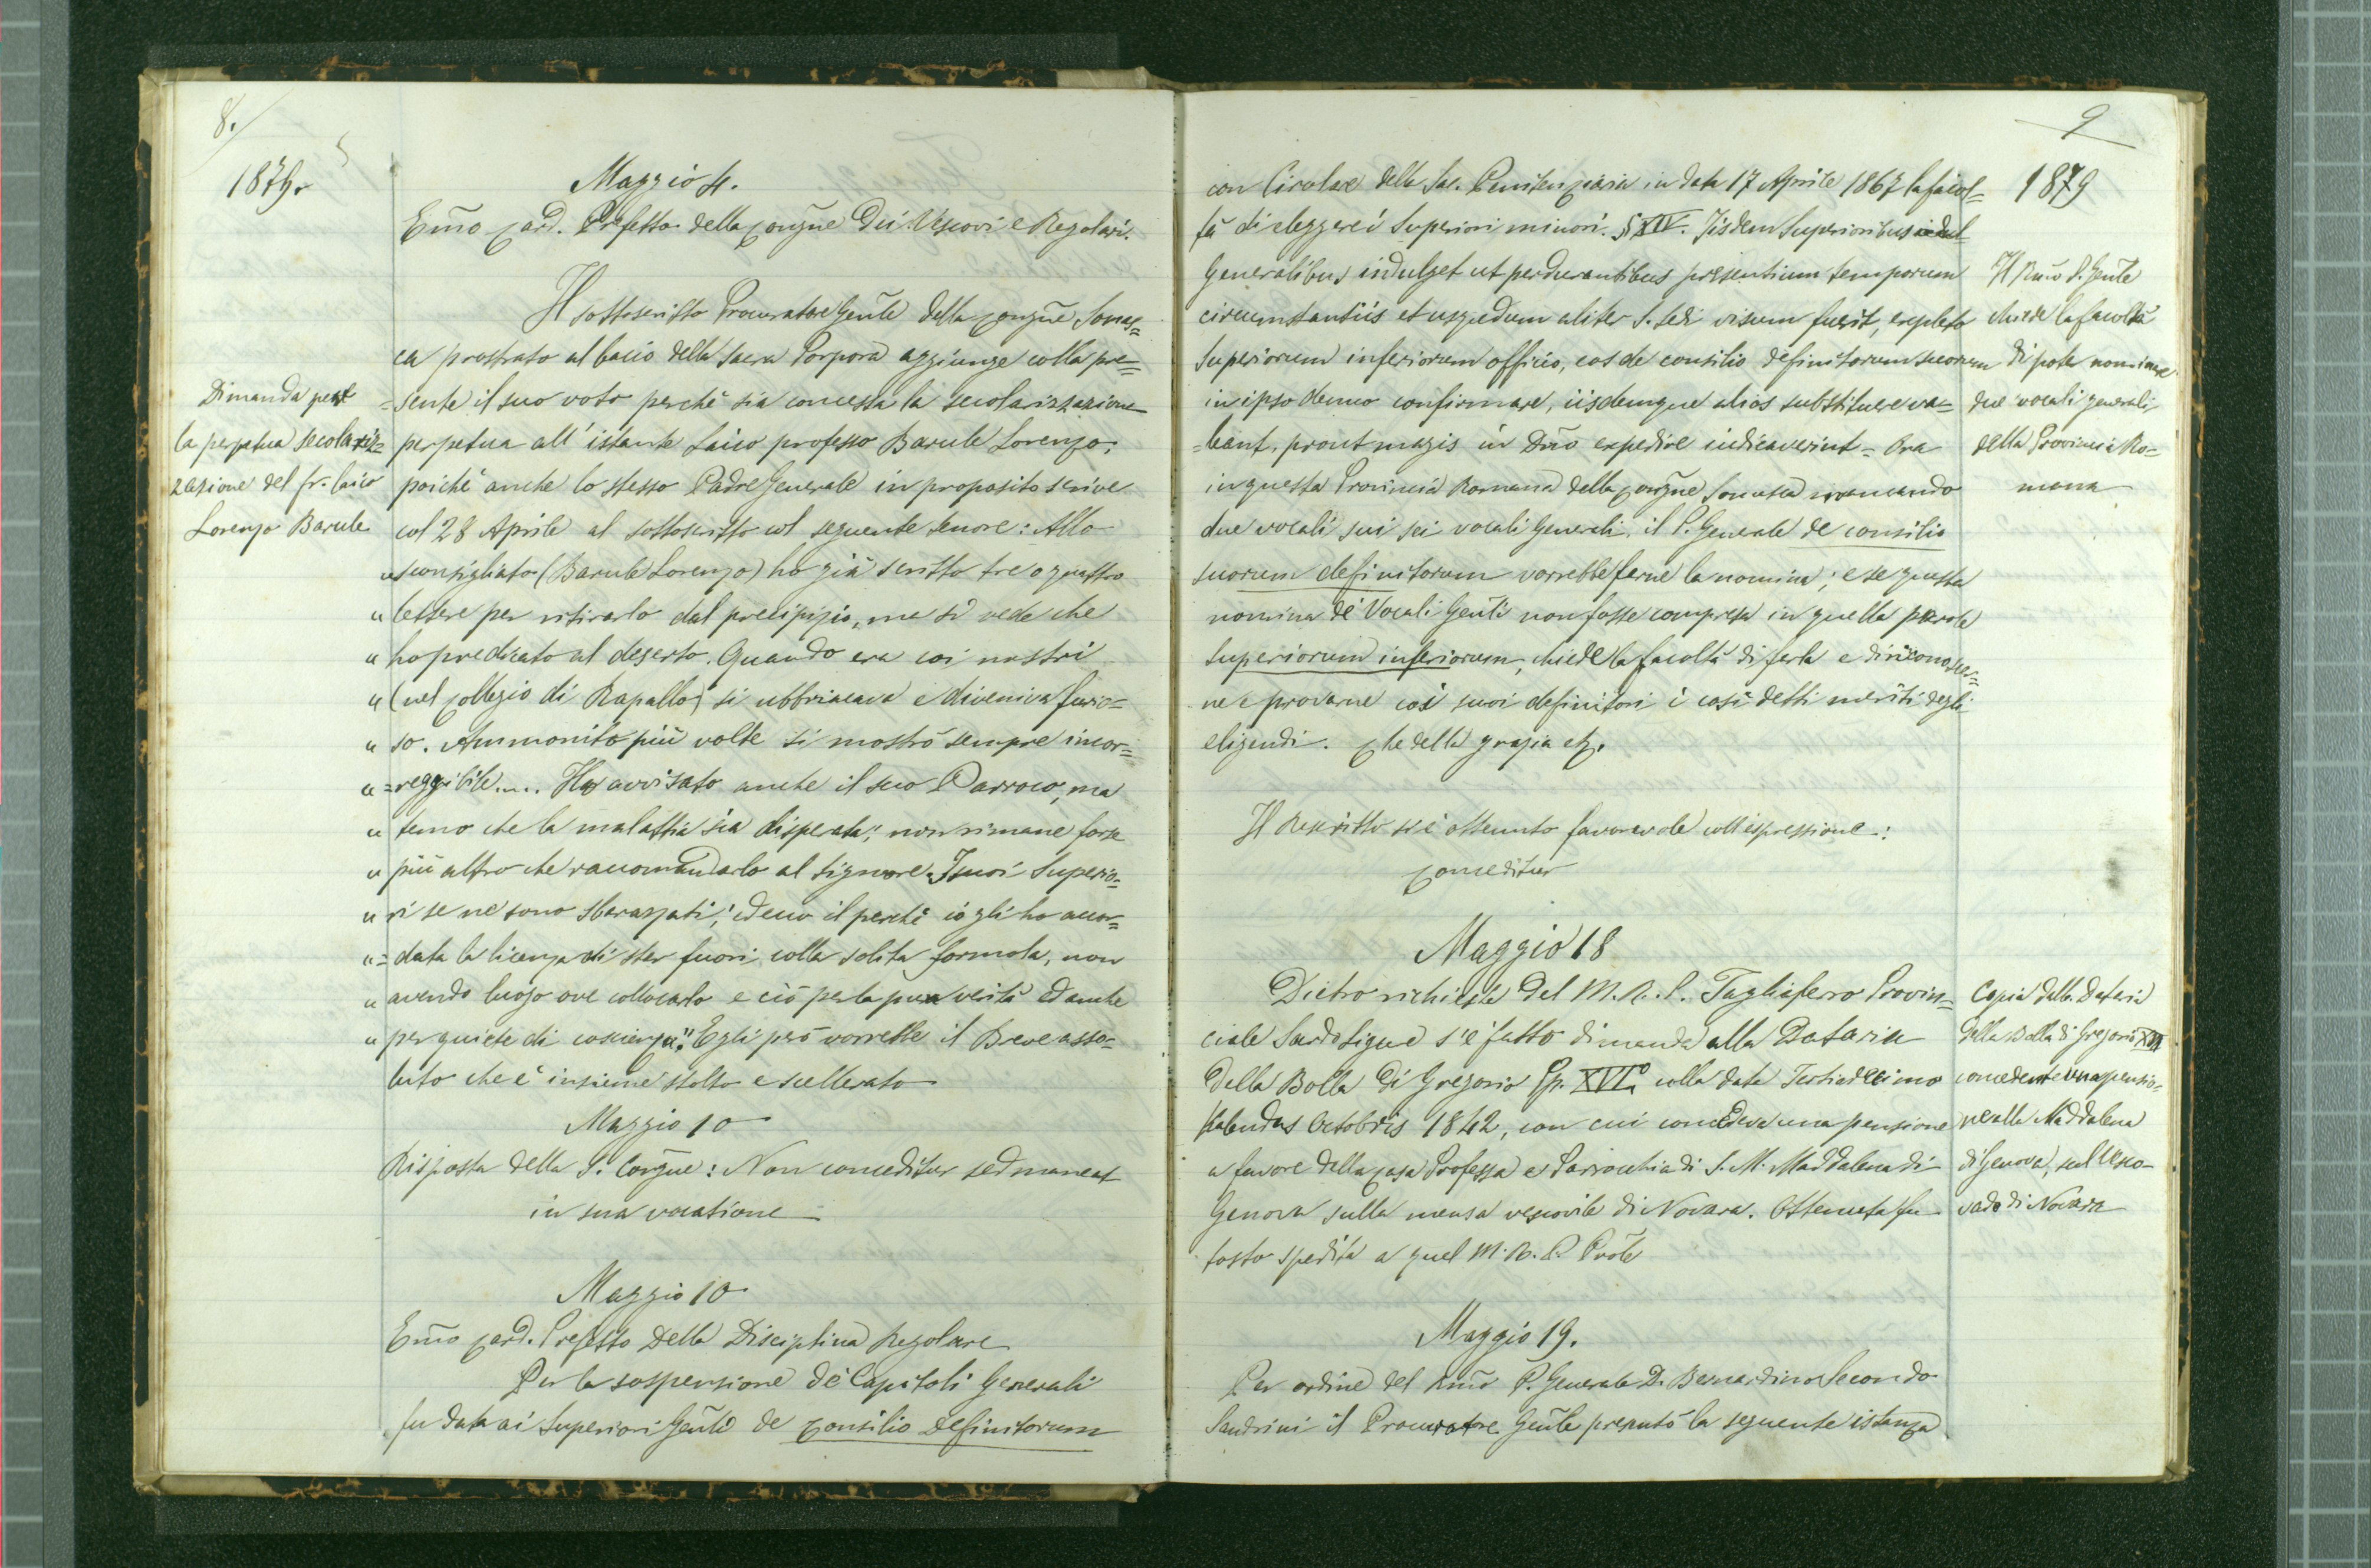 8.
1879.
Maggio 4.
Emo Card. Prefetto della Congne dei Vescovi e Regolari.
Il sottoscritto Procuratore Genle della Congne Somas=
ca prostrato al bacio della Sacra Porpora aggiunge colla pre=
=sente il suo voto perchè sia concessa la secolarizzazione
perpetua all'istante Laico professo Barule Lorenzo;
poichè anche lo stesso Padre Generale in proposito scrive
col 28 Aprile al sottoscritto col seguente tenore: Allo
"sconsigliato (Barule Lorenzo) ho già scritto tre o quattro
"lettere per ritirarlo dal precipizio, ma si vede che
"ho predicato al deserto. Quando era coi nostri
"(nel Collegio di Rapallo) si ubbriacava e diveniva furio=
"so. Ammonito più volte si mostrò sempre incor=
"=reggibile.... Ho avvisato anche il suo Parroco, ma
"temo che la malattia sia disperata; non rimane forse
"più altro che raccomandarlo al Signore. I suoi Superio=
"ri se ne sono sbarazzati; ed ecco il perchè io gli ho accor=
"=data la licenza di star fuori colla solita formola, non
"avendo luogo ove collocarlo e ciò per la pura verità ed anche
"per quiete di coscienza". Egli però vorrebbe il Breve asso=
luto che è insieme stolto e scellerato
Dimanda per
la perpetua secolariz=
zazione del fr. laico
Lorenzo Barule
Maggio 10
Risposta della S. Congne: Non conceditur sed maneat
in sua vocatione
Maggio 10
Emo Card. Prefetto della Disciplina Regolare
Per la sospensione de' Capitoli Generali
fu data ai Superiori Genli de Consilio Definitorum
9
1879
con Circolare della Sac. Penitenzieria in data 17 Aprile 1867 la facol=
tà di eleggere i Superiori minori. § XIV. Iisdem Superioribus
Generalibus indulget ut perdurantibus presentium temporum
circumstantiis et usquedum aliter S. Sedi visum fuerit, expleto
Superiorum inferiorum officio, eos de consilio definitorum suorum
in ipso denuo confirmare, iisdemque alios substituere va=
=leant, prout magis in Dno expedire indicaverint = Ora
in questa Provincia Romana della Congne Somasca mancando
due vocali sui sei vocali Generali, il P. Generale de consilio
suorum definitorum vorrebbe farne la nomina; e se questa
nomina de' Vocali Genli non fosse compresa in quella parola
Superiorum inferiorum, chiede la facoltà di farla e di riconoscer=
ne e provarne coi suoi definitori i così detti meriti degli
eligendi. Che della grazia etc.
Il Rmo P. Genle
chiede la facoltà
di poter nominare
due vocali generali
della Provincia Ro=
mana
Il Rescritto si è ottenuto favorevole coll'espressione:
Conceditur
Maggio 18
Dietro richiesta del M. R. P. Tagliaferro Provin=
ciale Sardo Ligure s'è fatto dimanda alla Dataria
della Bolla di Gregorio Pp. XVI° colla data Tertiodecimo
Kalendas Octobris 1842, con cui concedeva una pensione
a favore della Casa Professa e Parrocchia di S. M. Maddalena di
Genova sulla mensa vescovile di Novara. Ottenuta fu
tosto spedita a quel M. R. P. Prole
Copia dalla Dataria
della Bolla di Gregorio XVI
concedente una pensio=
ne alla Maddalena
di Genova, sul Vesco-
vado di Novara
Maggio 19.
Per ordine del Rmo P. Generale D. Bernardino Secondo
Sandrini il Procuratore Genle presentò la seguente istanza